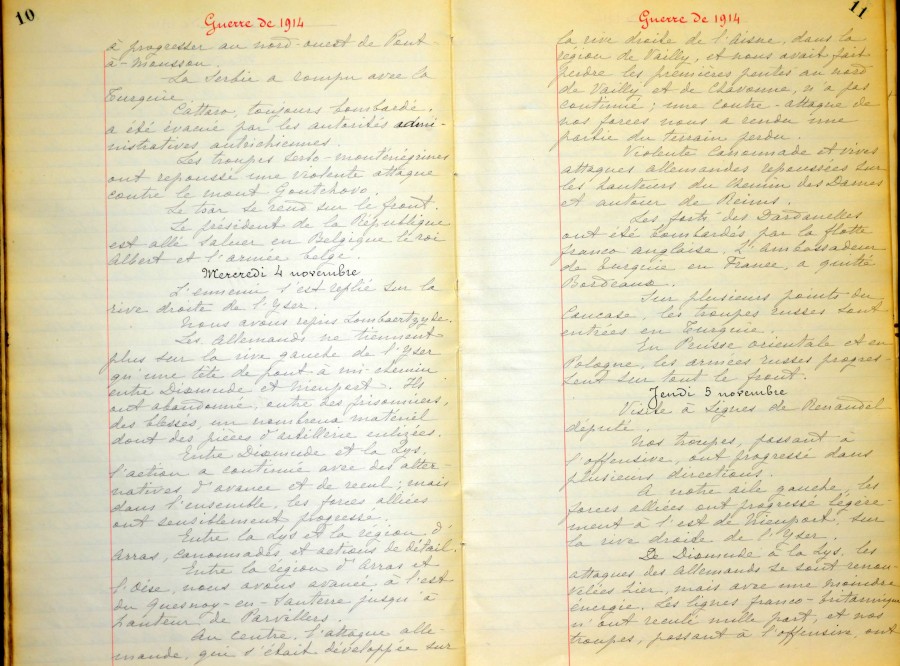 10
Guerre de 1914
à progresser au nord-ouest de Pont-
à-Mousson.
La Serbie a rompu avec la
Turquie.
Cattaro, toujours bombardé,
a été évacué par les autorités admi-
nistratives autrichiennes.
Les troupes serbo-monténégrines
ont repoussé une violente attaque
contre le mont Goutchovo.
Le tsar se rend sur le front.
Le président de la République
est allé saluer en Belgique le roi
Albert et l'armée belge.
Mercredi 4 novembre
L'ennemi s'est replié sur la
rive droite de l'Yser.
Nous avons repris Lombaertzyde.
Les Allemands ne tiennent
plus sur la rive gauche de l'Yser
qu'une tête de pont à mi-chemin
entre Dixmude et Nieuport. Ils
ont abandonné, outre des prisonniers,
des blessés, un nombreux matériel
dont des pièces d'artillerie enlisées.
Entre Dixmude et la Lys,
l'action a continué avec des alter-
natives d'avance et de recul; mais
dans l'ensemble, les forces alliées
ont sensiblement progressé.
Entre la Lys et la région d'
Arras, canonnades et actions de détail.
Entre la région d'Arras et
l'Oise, nous avons avancé à l'est
du Quesnoy-en-Santerre jusqu'à
hauteur de Parvillers.
Au centre, l'attaque alle-
mande, qui s'était développée sur
11
Guerre de 1914
la rive droite de l'Aisne, dans la
région de Vailly, et nous avait fait
perdre les premières pentes au nord
de Vailly et de Chavonne, n'a pas
continué; une contre-attaque de
nos forces nous a rendu une
partie du terrain perdu.
Violente canonnade et vives
attaques allemandes repoussées sur
les hauteurs du Chemin des Dames
et autour de Reims.
Les forts des Dardanelles
ont été bombardés par la flotte
franco anglaise. L'ambassadeur
de Turquie en France, a quitté
Bordeaux.
Sur plusieurs points du
Caucase, les troupes russes sont
entrées en Turquie.
En Prusse orientale et en
Pologne, les armées russes progres-
sent sur tout le front.
Jeudi 5 novembre
Visite à Signes de Renaudel
député.
Nos troupes, passant à
l'offensive, ont progressé dans
plusieurs directions.
A notre aile gauche, les
forces alliées ont progressé légère-
ment à l'est de Nieuport, sur
la rive droite de l'Yser.
De Dixmude à la Lys, les
attaques des Allemands se sont renou-
velées hier, mais avec une moindre
énergie. Les lignes franco-britanniques
n'ont reculé nulle part, et nos
troupes, passant à l'offensive, ont